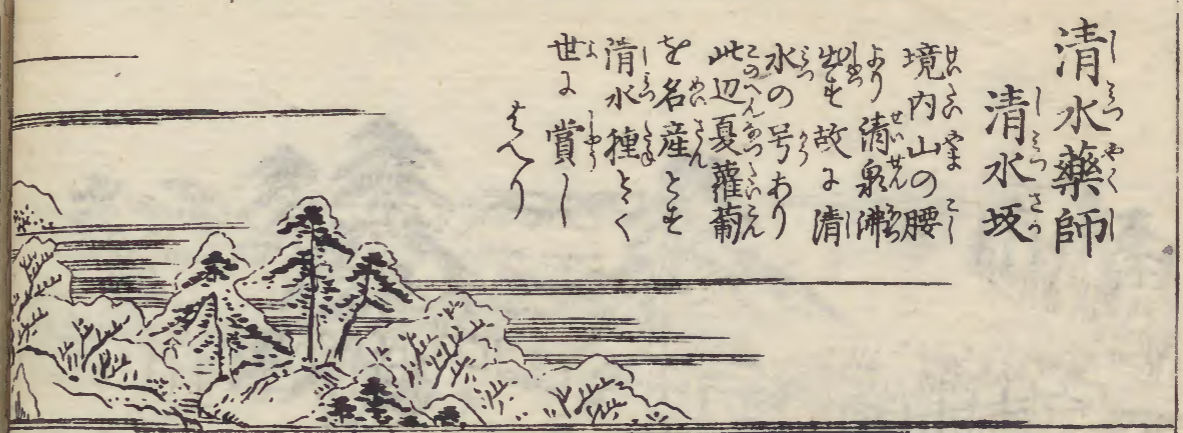 清水薬師
清水坂
境内山の腰
より清泉沸
出す故に清
水の号あり
此辺夏蘿蔔
を名産とす
清水種とて
世に賞し
あへり